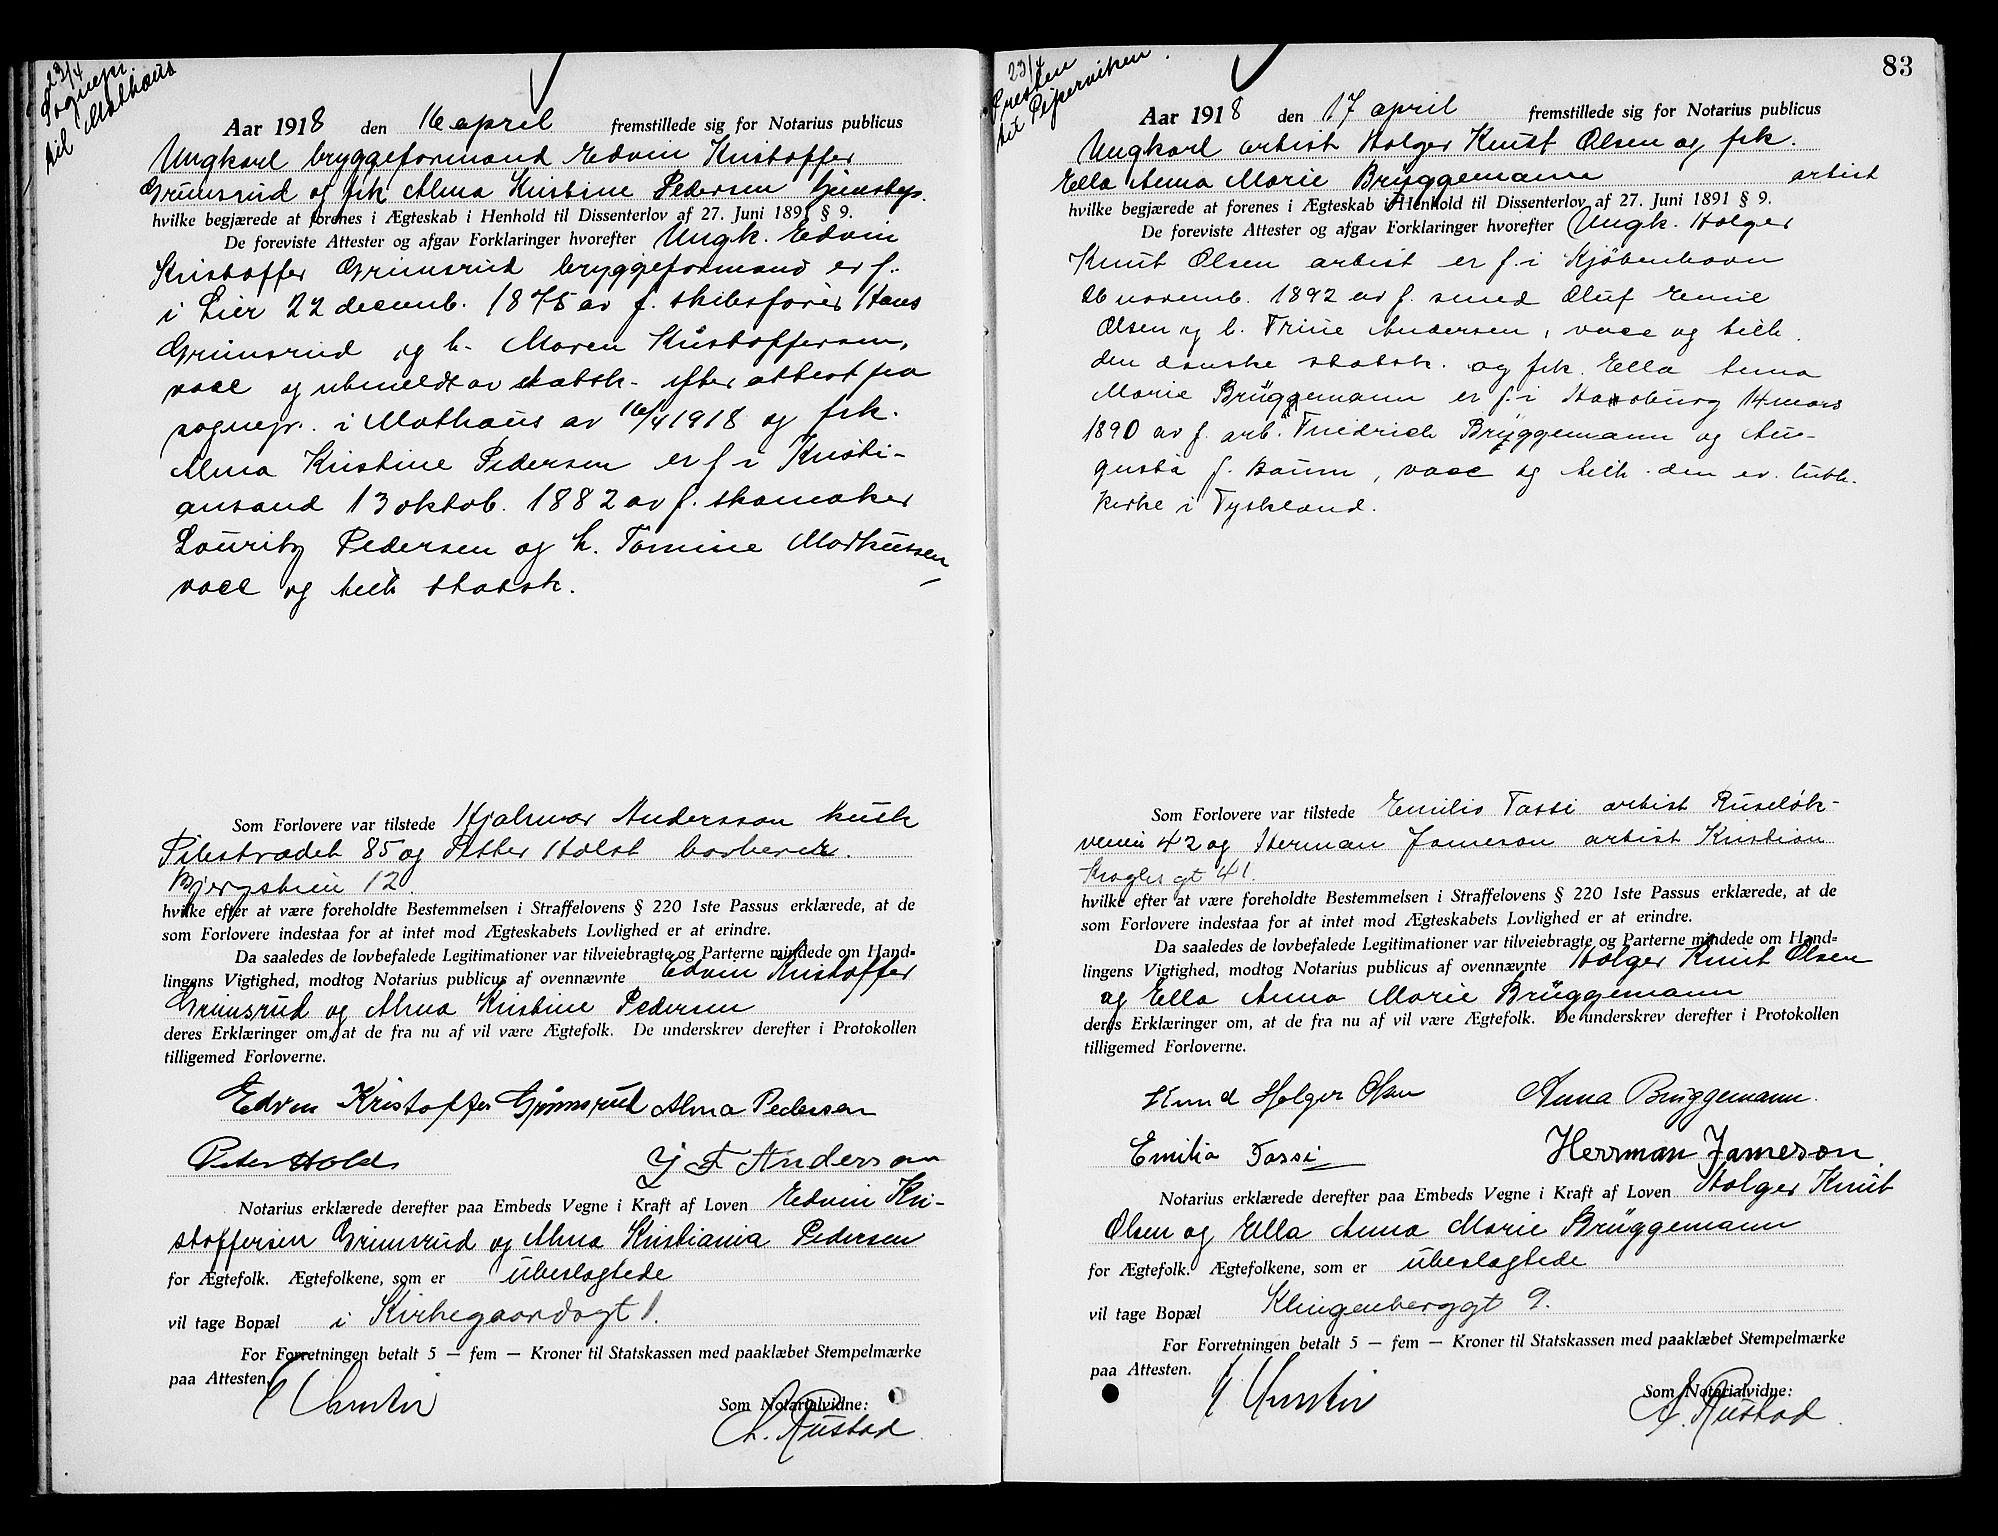 23/4
Sognepr.
til Mathæus
Aar 1918 den 16 april fremstillede sig for Notarius publicus
Ungkarl bryggeformand Edvin Kristoffer
Grimsrud og frk Alma Kristine Pedersen
hvilke begjærede at forenes i Ægteskab i Henhold til Dissenterlov af 27. Juni 1891 § 9.
De foreviste Attester og afgav Forklaringer hvorefter Ungk. Edvin
Kristoffer Grimsrud bryggeformand er f.
i Lier 22 decemb. 1875 av f. skibsfører Hans
Grimsrud og h. Maren Kristoffersen,
vacc og utmeldt av statsk. efter attest fra
sognepr. i Mathæus av 16/4 1918 og frk.
Alma Kristine Pedersen er f i Kristi-
ansand 13 oktob. 1882 av f. skomaker
Lauritz Pedersen og h. Tomine Markussen
vacc og tilh statsk.
Som Forlovere var tilstede Hjalmar Andersson kusk
Pilestrædet 85 og Petter Holst barberer.
Bjergstien 12.
hvilke efter at være foreholdte Bestemmelsen i Straffelovens § 220 1ste Passus erklærede, at de
som Forlovere indestaa for at intet mod Ægteskabets Lovlighed er at erindre.
Da saaledes de lovbefalede Legitimationer var tilveiebragte og Parterne mindede om Hand-
lingens Vigtighed, modtog Notarius publicus af ovennævnte Edvin Kristoffer
Grimsrud og Alma Kristine Pedersen
deres Erklæringer om, at de fra nu af vil være Ægtefolk. De underskrev derefter i Protokollen
tilligemed Forloverne.
Edvin Kristoffer Grimsrud Alma Pedersen
Peter Holst J F Anderson
Notarius erklærede derefter paa Embeds Vegne i Kraft af Loven Edvin Kri-
stoffersen Grimsrud og Alma Kristiania Pedersen
for Ægtefolk. Ægtefolkene, som er ubeslegtede
vil tage Bopæl i Kirkegaardsgt 1.
For Forretningen betalt 5 — fem — Kroner til Statskassen med paaklæbet Stempelmærke
paa Attesten.
Som Notarialvidne:
Rustad
83
23/4
Presten
til Piperviken.
Aar 1918 den 17 april fremstillede sig for Notarius publicus
Ungkarl artist Holger Knut Olsen og frk.
Ella Anna Marie Brüggemann artist
hvilke begjærede at forenes i Ægteskab i Henhold til Dissenterlov af 27. Juni 1891 § 9.
De foreviste Attester og afgav Forklaringer hvorefter Ungk. Holger
Knut Olsen artist er f. i Kjöbenhavn
26 novemb. 1892 av f. smed Oluf Emil
Olsen og h. Trine Andersen, vacc og tilh.
den danske statsk. og frk. Ella Anna
Marie Brüggemann er f. i Hamburg 14 mars
1890 av f. arb. Friedrich Brüggemann og Au-
gusta f. Baum, vacc og tilh. den ev. luth.
kirke i Tyskland.
Som Forlovere var tilstede Emilio Tassi artist Ruseløk-
veien 42 og Herman Jameson artist Kristian
Kroghs gt 41.
hvilke efter at være foreholdte Bestemmelsen i Straffelovens § 220 1ste Passus erklærede, at de
som Forlovere indestaa for at intet mod Ægteskabets Lovlighed er at erindre.
Da saaledes de lovbefalede Legitimationer var tilveiebragte og Parterne mindede om Hand-
lingens Vigtighed, modtog Notarius publicus af ovennævnte Holger Knut Olsen
og Ella Anna Marie Brüggemann
deres Erklæringer om, at de fra nu af vil være Ægtefolk. De underskrev derefter i Protokollen
tilligemed Forloverne.
Knud Holger Olsen Anna Brüggemann.
Emilio Tassi Herrman Jameson.
Notarius erklærede derefter paa Embeds Vegne i Kraft af Loven Holger Knut
Olsen og Ella Anna Marie Brüggemann
for Ægtefolk. Ægtefolkene, som er ubeslegtede
vil tage Bopæl Klingenberggt 9.
For Forretningen betalt 5 — fem — Kroner til Statskassen med paaklæbet Stempelmærke
paa Attesten.
Som Notarialvidne:
Rustad